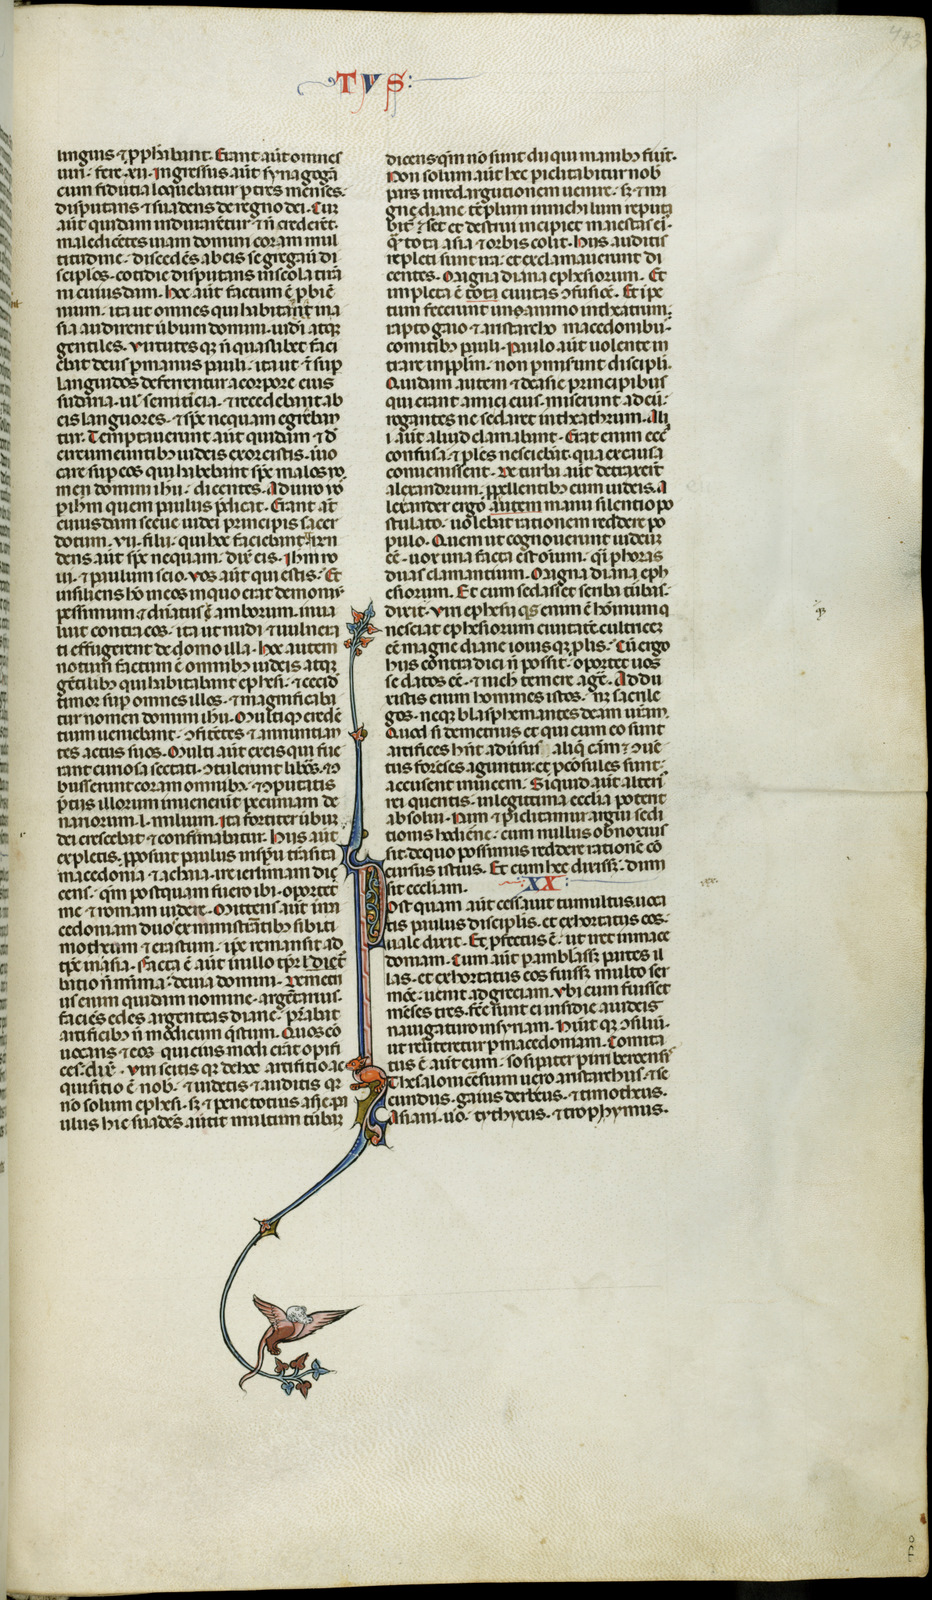 TVS
443
linguis ⁊ p̱ph̄abant. Erant aūt omnes
uiri. fere .xii. Ingressus aūt synagogā
cum fidutia loquebatur p tres menses.
disputans ⁊ suadens de regno dei. Cū
aūt quidam indurarētur ⁊ ñ crederēt.
maledicētes uiam domini coram mul
titudine. discedēs ab eis segregauit di
sciplos. cotidie disputans in scola tirā
ni cuiusdam. hoc aūt factum ē p bien
nium. ita ut omnes qui habitant in a
sia audirent ūbum domini. iudi atqꝫ
gentiles. Virtutes qꝫ ñ quaslibet faci
ebat deus p manus pauli. ita ut ⁊ sup
languidos deferrentur a corpore eius
sudaria. ul' semiticia. ⁊ recedebant ab
eis languores. ⁊ spc̄ nequam egrediebān
tur. Temptauerunt aūt quidam ⁊ d'
circumeuntibꝫ iudeis exorcistis. inuo
care sup eos qui habebant spc̄ malos no
men domini ih̄u. dicentes. Adiuro uo
p ih̄m quem paulus p̄dicat. Erant aūt
cuiusdam sceue iudei principis sacer
dotum. vii. filii. qui hoc faciebant. R̄n
dens aūt sp̄c nequam. dix̄ eis. Ih̄m no
ui. ⁊ paulum scio. vos aūt qui estis. Et
insiliens ho in eos in quo erat demoniū
pessimum ⁊ dn̄atus ē amborum. inua
luit contra eos. ita ut nudi ⁊ uulnera
ti effugerent de domo illa. hoc autem
notum factum ē omnibꝫ iudeis atqꝫ
gētilibꝫ qui habitabant ephesi. ⁊ cecid
timor sup omnes illos. ⁊ magnificaba
tur nomen domini ih̄u. Multi qꝫ credē
tium ueniebant. ꝯfitētes ⁊ annuntian
tes actus suos. Multi aūt ex eis qui fue
rant curiosa sectati. ꝯtulerunt libros. ⁊ ꝯ
busserunt coram omnibꝫ. ⁊ ꝯputatis
p̄tiis illorum inuenerūt pecuniam de
nariorum .l. milium. Ita fortiter ūbū
dei crescebat ⁊ confirmabatur. Hiis aūt
expletis. pposuit paulus in sp̄u trāsita
macedonia ⁊ achaia. ire ierlimam dic
cens. qm̄ postquam fuero ibi. oportet
me ⁊ romam uidere. Mittens aūt in ma
cedoniam duo ex ministrātibꝫ sibi ti
motheum ⁊ erastum. ip̄e remansit ad
tp̄c in asia. Facta ē aūt in illo tp̄r
batio ñ minima. de uia domini. Demetri
us enim quidam nomine. argētarius.
faciēs edes argenteas diane. p̄stabat
artificibꝫ ñ modicum q̄stum. Quos cō
uocans ⁊ eos qui eius modi erāt opifi
ces. dix̄. Viri scitis qꝫ de hoc artificio ac
quisitio ē nob'. ⁊ uidetis ⁊ auditis qꝫ
nō solum ephesi. sꝫ ⁊ pene totius asie. pa
ulus hic suadēs auertit multam turbā
dicens qm̄ nō sunt dii qui manibꝫ fiūt.
Non solum aūt hec piclitabitur nob'
pars in redargutionem uenire. sꝫ ⁊ ma
gne diane tēplum in nichilum reputa
bit̄. ⁊ set et destrui incipiet maiestas ei'.
q̄ tota asia ⁊ orbis colit. Hiis auditis
repleti sunt ira. et exclamauerunt di
centes. Magna diana ephesiorum. Et
impleta ē tota ciuitas ꝯfusiōe. Et ipe
tum fecerunt uno animo in theatrum.
rapto gaio ⁊ aristarcho macedonibꝫ.
comitibꝫ pauli. Paulo aūt uolente in
trare in pplm̄. non pmisrunt discipli.
Quidam autem ⁊ de asie principibus
qui erant amici eius. miserunt ad eū.
rogantes ne se daret in theathrum. Ali
i. aūt aliud clamabant. Erat enim ecc̄
confusa. ⁊ plēs nesciebāt. qua ex causa
conuenissent. De turba aūt detraxerūt
alexandrum. ppellentibꝫ eum iudeis. A
lexander ergo autem manu silentio po
stulato. uolebat rationem reddere po
pulo. Quem ut cognouerunt iudeūm
eē. uox una facta est oīum. q̄si p horas
duas clamantium. Magna diana eph
esiorum. Et cum sedasset scriba tūbas.
dixit. Viri ephesii quis enim ē hominum q̄
nesciat ephesiorum ciuitatē. cultricez
eē magne diane. iouis qꝫ plis. Cū ergo
hiis contradici ñ possit. oportet uos
sedatos eē. ⁊ nich' temere agē. Addu
xistis enim homines istos. nꝫ sacrile
gos. neqꝫ blasphemantes deam urām.
Quod si demetrius et qui cum eo sunt
artifices hñt aduersus aliq̄
tus forēses aguntur. et pcōsules sunt.
accusent inuicem. Si quid aūt alteri'
rei queritis. in legittima ecclia poterit
absolui. Nam ⁊ piclitamur argui sedi
tionis hodierne. cum nullus obnoxius
sit. de quo possimus reddere rationē cō
cursus istius. Et cum hec dixissꝫ. dimi
sit eccliam.
XX
Postquam aūt cessauit tumultus. uoca
tis paulus disciplis. et exhortatus eos.
uale dixit. Et pfectus ē. ut iret in mace
doniam. Cum aūt pamblassꝫ partes il
las. et exhortatus eos fuissꝫ multo ser
mōe. uenit ad greciam. Vbi cum fuisset
mēses tres. fc̄e sunt ei insidie a iudeis
nauigaturo in syriam. Hūit qꝫ ꝯsiliū.
ut reuerteretur p macedoniam. Comita
tus ē aūt eum. sosipater pirri beroensi'
Thesalonicēsium uero aristarchus. ⁊ se
cundus. gaius derbeus. ⁊ timotheus.
Asiani. uō. tythycus. ⁊ trophymus.